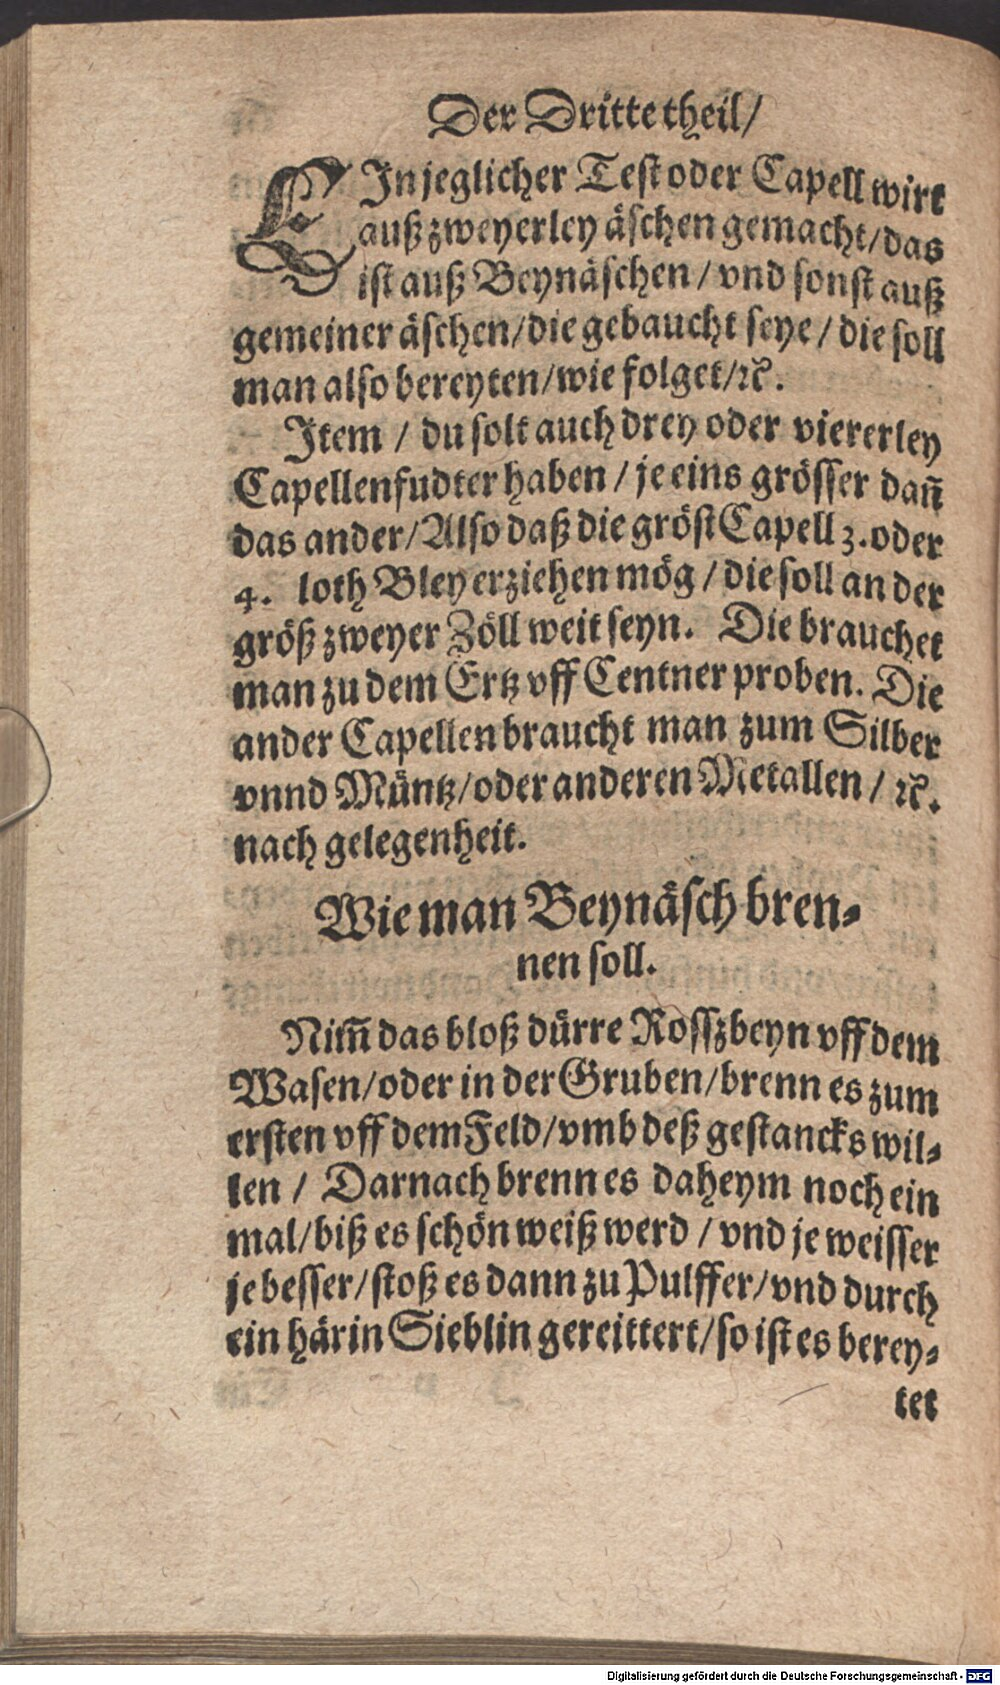 Der Dritte theil/
EIn jeglicher Test oder Capell wirt
auß zweyerley äschen gemacht/das
ist auß Beynäschen/vnd sonst auß
gemeiner äschen/die gebaucht seye/die soll
man also bereyten/wie folget/ꝛc̃.
Item/du solt auch drey oder viererley
Capellenfudter haben/je eins grösser dañ
das ander/Also daß die gröst Capell 3. oder
4. loth Bley erziehen mög/die soll an der
größ zweyer Zöll weit seyn. Die brauchet
man zu dem Ertz vff Centner proben. Die
ander Capellen braucht man zum Silber
vnnd Müntz/oder anderen Metallen/ꝛc̃.
nach gelegenheit.
Wie man Beynäsch bren-
nen soll.
Nim̃ das bloß dürre Rossßbeyn vff dem
Wasen/oder in der Gruben/brenn es zum
ersten vff dem Feld/vmb deß gestancks wil-
len/Darnach brenn es daheym noch ein
mal/biß es schön weiß werd/vnd je weisser
je besser/stoß es dann zu Pulffer/vnd durch
ein härin Sieblin gereittert/so ist es berey-
tet
Digitalisierung gefördert durch die Deutsche Forschungsgemeinschaft - DFG